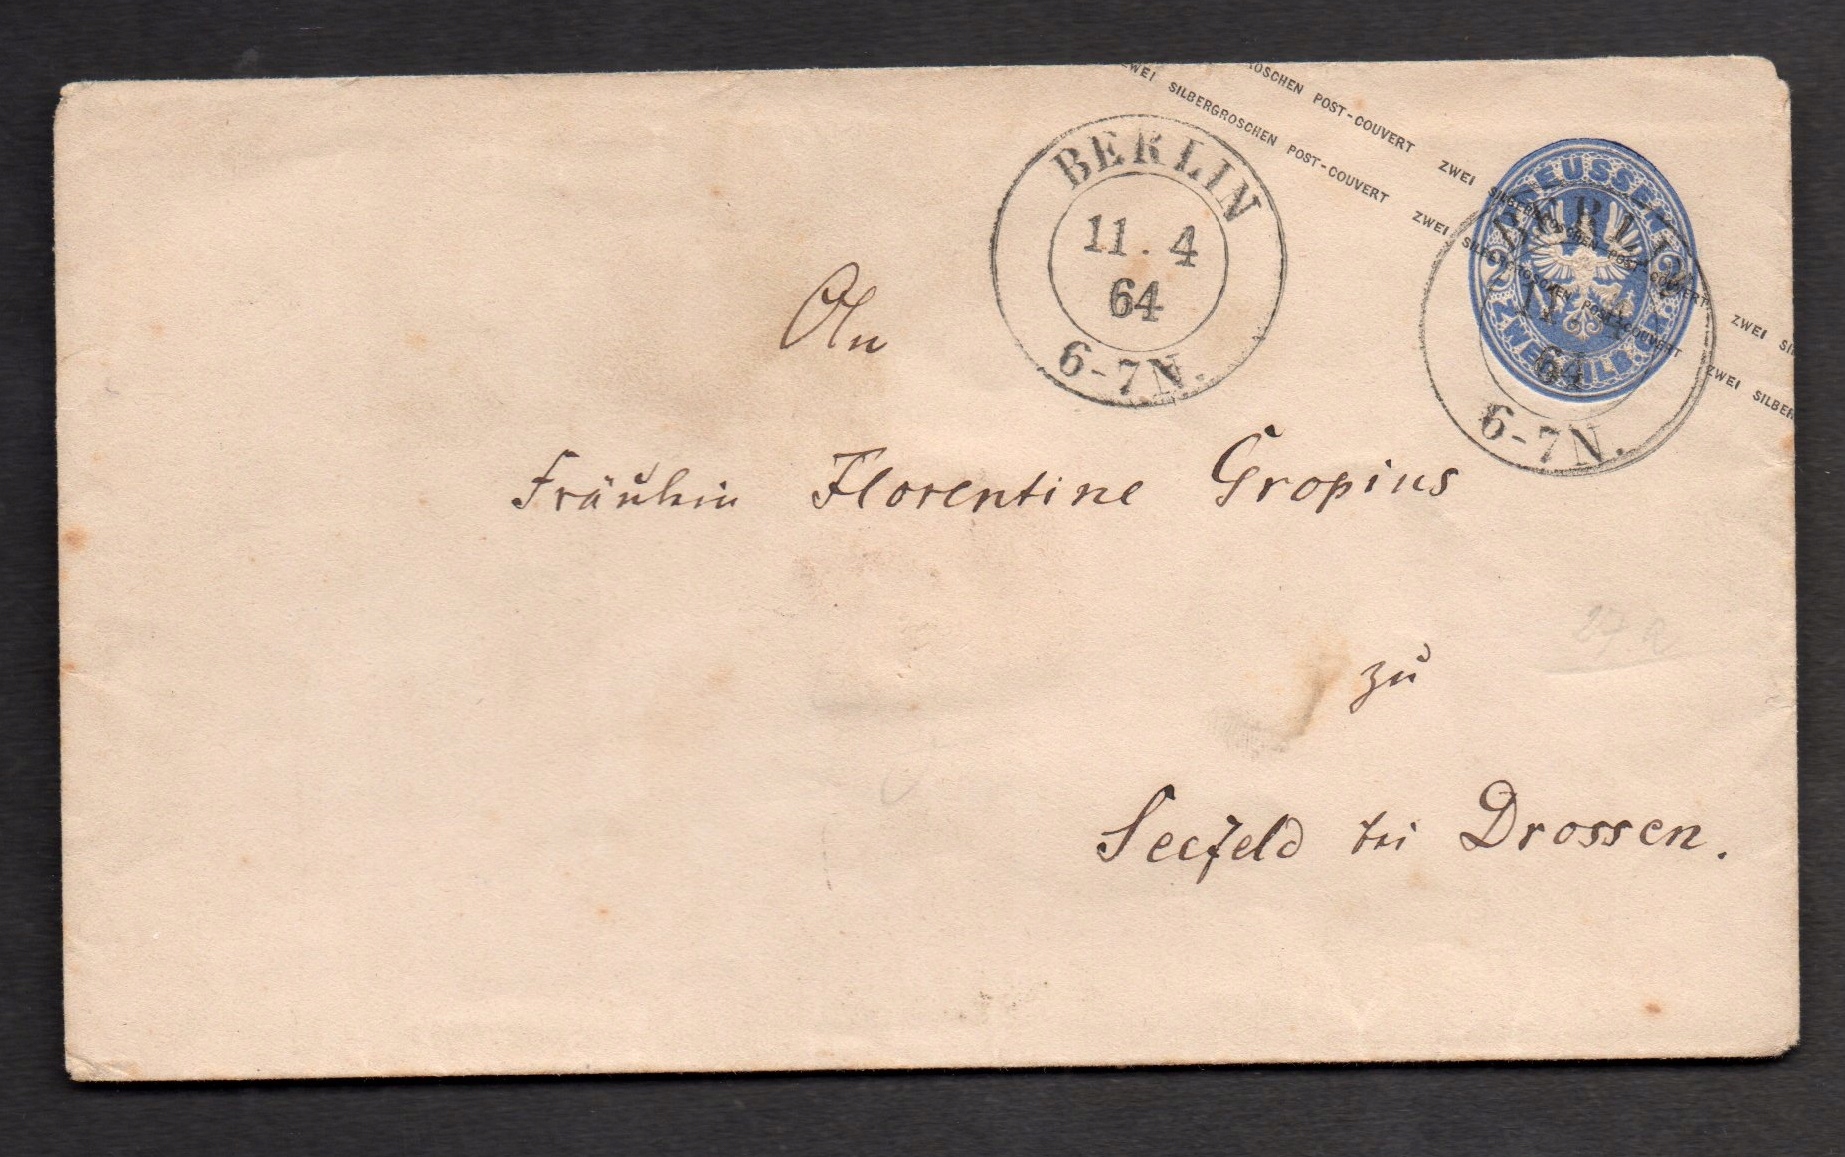 OSCHEN POST-COUVERT ZWEI SILBERGROSCHEN POST-COUVERT ZWEI SI
ZWEI SILBERGROSCHEN POST-COUVERT ZWEI SILBERGROSCHEN POST-COUVERT ZWEI SILBER
BERLIN
11. 4
64
6-7N.
PREUSSEN
2 2
ZWEI SILB. GR.
BERLIN
11 4
64
6-7N.
An
Fräulein Florentine Gropius
27 a
zu
Seefeld bei Drossen.